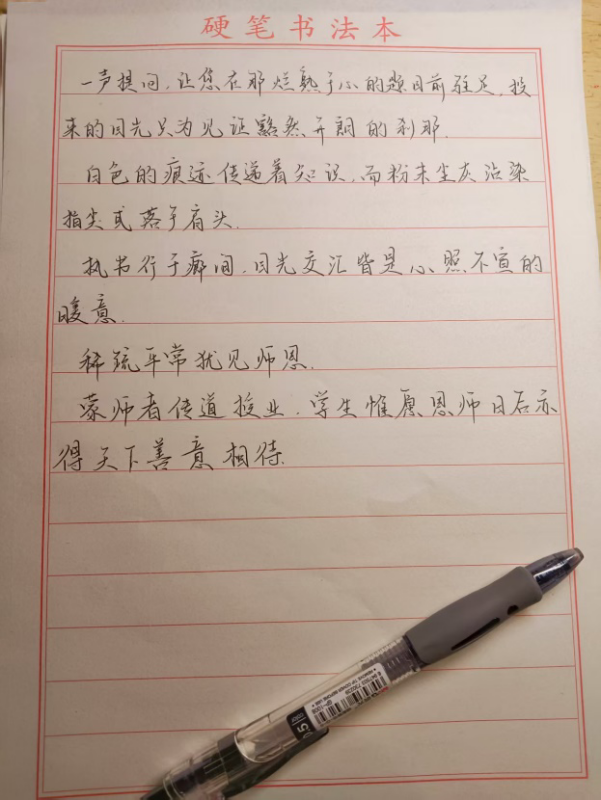 硬笔书法本
一声提问,让您在那烂熟于心的题目前驻足,投
来的目光只为见证豁然开朗的刹那.
白色的痕迹传递着知识,而粉末尘灰沾染
指尖或落于肩头.
执书行于廊间,目光交汇皆是心照不宣的
暖意.
稀疏平常犹见师恩.
蒙师者传道授业,学生惟愿恩师日后亦
得天下善意相待.
0.5